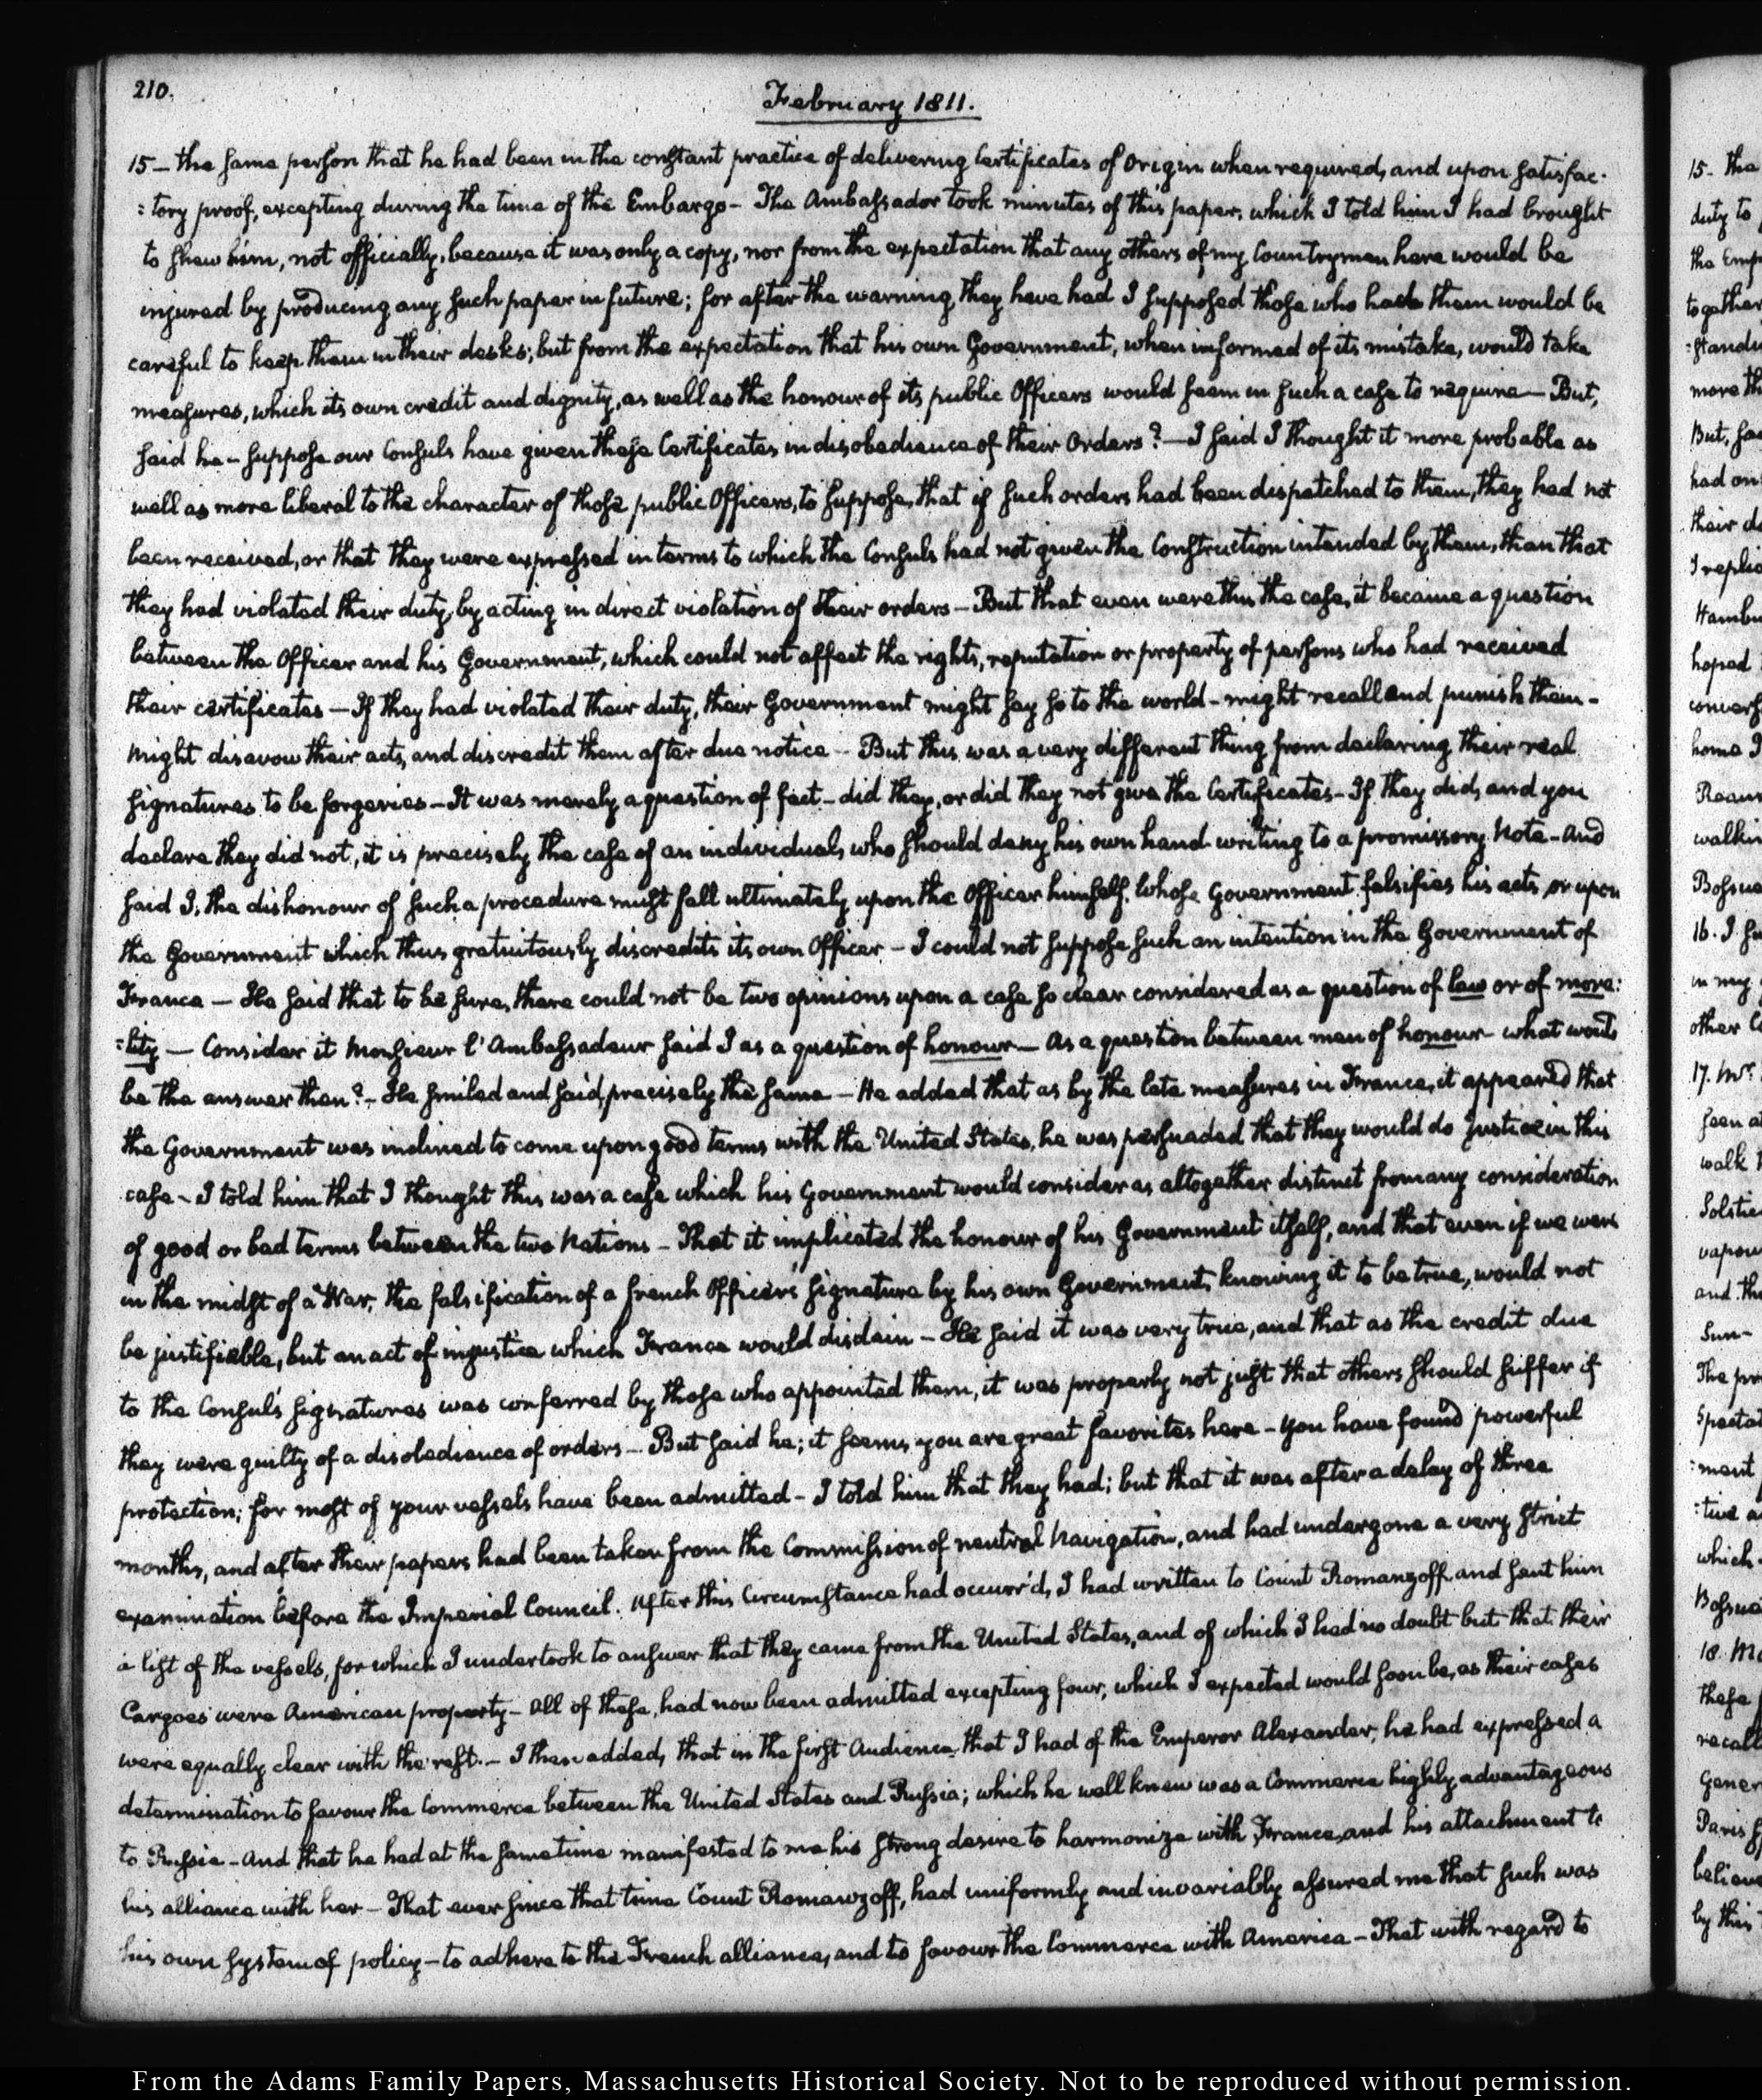 210.
February 1811.
15 – the same person that he had been in the constant practice of delivering Certificates of Origin when required, and upon satisfac-
:tory proof, excepting during the time of the Embargo – The Ambassador took minutes of this paper, which I told him I had brought
to shew him, not officially, because it was only a copy, nor from the expectation that any others of my Countrymen here would be
injured by producing any such paper in future; for after the warning they have had I supposed those who had them would be
careful to keep them in their desks; but from the expectation that his own Government, when informed of its mistake, would take
measures, which its own credit and dignity, as well as the honour of its public Officers would seem in such a case to require – But,
said he – suppose our Consuls have given these Certificates in disobedience of their Orders? – I said I thought it more probable as
well as more liberal to the character of those public Officers, to suppose, that if such orders had been dispatched to them, they had not
been received, or that they were expressed in terms to which the Consuls had not given the Construction intended by them, than that
they had violated their duty, by acting in direct violation of their orders – But that even were this the case, it became a question
between the Officer and his Government, which could not affect the rights, reputation or property of persons who had received
their certificates – If they had violated their duty, their Government might say so to the world – might recall and punish them –
might disavow their acts, and discredit them after due notice – But this was a very different thing from declaring their real
signatures to be forgeries – It was merely a question of fact – did they, or did they not give the Certificates – If they did, and you
declare they did not, it is precisely the case of an individual, who should deny his own hand-writing to a promissory Note – And
said I, the dishonour of such a procedure must fall ultimately upon the Officer himself, whose Government falsifies his acts, or upon
the Government which thus gratuitously discredits its own Officer – I could not suppose such an intention in the Government of
France – He said that to be sure, there could not be two opinions upon a case so clear considered as a question of law or of mora:
:lity – Consider it Monsieur l'Ambassadeur said I as a question of honour – As a question between men of honour – what would
be the answer then? – He smiled and said, precisely the same – He added that as by the late measures in France, it appeared that
the Government was inclined to come upon good terms with the United States, he was persuaded that they would do justice in this
case – I told him that I thought this was a case which his Government would consider as altogether distinct from any consideration
of good or bad terms between the two Nations – That it implicated the honour of his Government itself, and that even if we were
in the midst of a War, the falsification of a French Officer's signature by his own Government, knowing it to be true, would not
be justifiable, but an act of injustice which France would disdain – He said it was very true, and that as the credit due
to the Consul's signatures was conferred by those who appointed them, it was properly not just that others should suffer if
they were guilty of a disobedience of orders – But said he; it seems, you are great favorites here – you have found powerful
protection; for most of your vessels have been admitted – I told him that they had; but that it was after a delay of three
months, and after their papers had been taken from the Commission of neutral Navigation, and had undergone a very strict
examination before the Imperial Council. After this Circumstance had occurr'd, I had written to Count Romanzoff and sent him
a list of the vessels, for which I undertook to answer that they came from the United States, and of which I had no doubt but that their
Cargoes were American property – All of these, had now been admitted excepting four, which I expected would soon be, as their cases
were equally clear with the rest. – I then added, that in the first Audience that I had of the Emperor Alexander, he had expressed a
determination to favour the Commerce between the United States and Russia; which he well knew was a Commerce highly advantageous
to Russia – And that he had at the same time manifested to me his strong desire to harmonize with France, and his attachment to
his alliance with her – That ever since that time Count Romanzoff, had uniformly and invariably assured me that such was
his own system of policy – to adhere to the French alliance, and to favour the Commerce with America – That with regard to
From the Adams Family Papers, Massachusetts Historical Society. Not to be reproduced without permission.